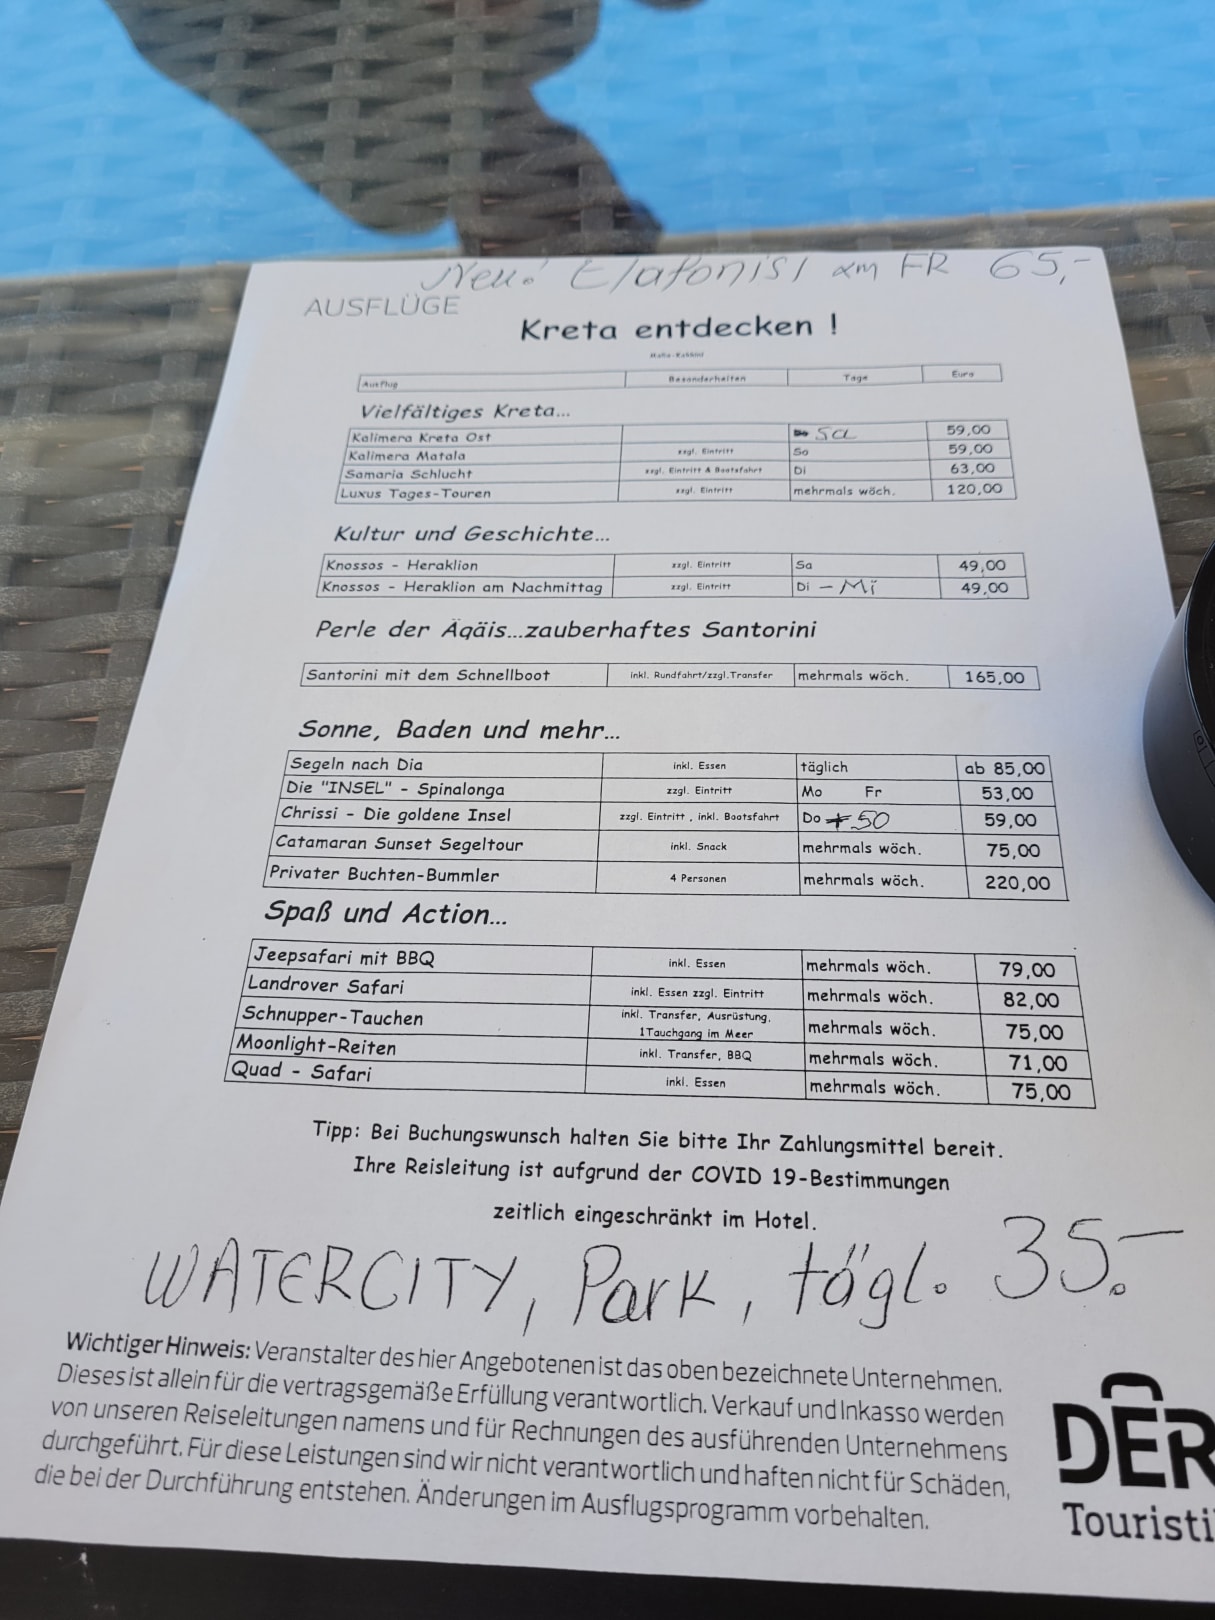 Neu! Elafonisi am FR 65,-
AUSFLÜGE
Kreta entdecken !
Ausflug Besonderheiten Tage Euro
Vielfältiges Kreta...
Kalimera Kreta Ost Sa 59,00
Kalimera Matala zzgl. Eintritt So 59,00
Samaria Schlucht zzgl. Eintritt & Bootsfahrt Di 63,00
Luxus Tages-Touren zzgl. Eintritt mehrmals wöch. 120,00
Kultur und Geschichte...
Knossos - Heraklion zzgl. Eintritt Sa 49,00
Knossos - Heraklion am Nachmittag zzgl. Eintritt Di - Mi 49,00
Perle der Ägäis...zauberhaftes Santorini
Santorini mit dem Schnellboot inkl. Rundfahrt/zzgl.Transfer mehrmals wöch. 165,00
Sonne, Baden und mehr...
Segeln nach Dia inkl. Essen täglich ab 85,00
Die "INSEL" - Spinalonga zzgl. Eintritt Mo Fr 53,00
Chrissi - Die goldene Insel zzgl. Eintritt , inkl. Bootsfahrt Do + SO 59,00
Catamaran Sunset Segeltour inkl. Snack mehrmals wöch. 75,00
Privater Buchten-Bummler 4 Personen mehrmals wöch. 220,00
Spaß und Action...
Jeepsafari mit BBQ inkl. Essen mehrmals wöch. 79,00
Landrover Safari inkl. Essen zzgl. Eintritt mehrmals wöch. 82,00
Schnupper-Tauchen inkl. Transfer, Ausrüstung, 1Tauchgang im Meer mehrmals wöch. 75,00
Moonlight-Reiten inkl. Transfer, BBQ mehrmals wöch. 71,00
Quad - Safari inkl. Essen mehrmals wöch. 75,00
Tipp: Bei Buchungswunsch halten Sie bitte Ihr Zahlungsmittel bereit.
Ihre Reisleitung ist aufgrund der COVID 19-Bestimmungen
zeitlich eingeschränkt im Hotel.
WATERCITY, Park, tägl. 35.-
Wichtiger Hinweis: Veranstalter des hier Angebotenen ist das oben bezeichnete Unternehmen.
Dieses ist allein für die vertragsgemäße Erfüllung verantwortlich. Verkauf und Inkasso werden
von unseren Reiseleitungen namens und für Rechnungen des ausführenden Unternehmens
durchgeführt. Für diese Leistungen sind wir nicht verantwortlich und haften nicht für Schäden,
die bei der Durchführung entstehen. Änderungen im Ausflugsprogramm vorbehalten.
DER
Touristi